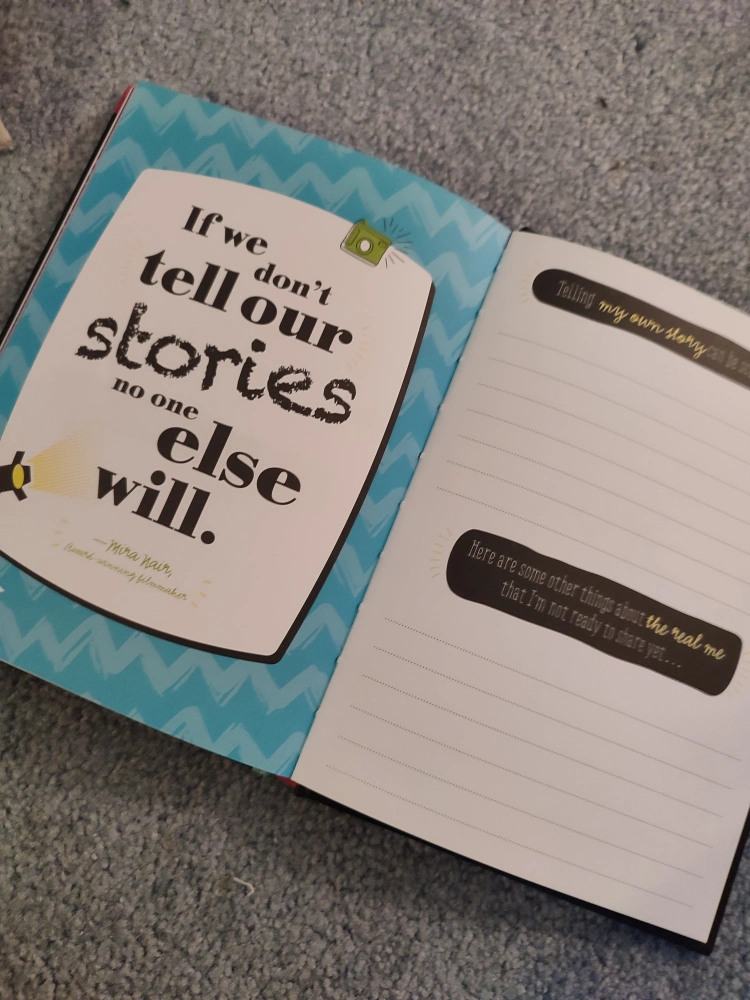 If we
don't
tell our
stories
no one
else
will.
—Mira Nair,
Award-winning filmmaker
Telling my own story can be
Here are some other things about the real me
that I'm not ready to share yet...